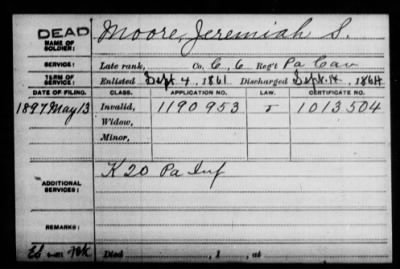 DEAD
NAME OF SOLDIER: Moore, Jeremiah S.
SERVICE: Late rank, Co. C, 6 Reg't Pa Cav
TERM OF SERVICE: Enlisted Sept 4, 1861 Discharged Sept. 14, 1864
DATE OF FILING. CLASS. APPLICATION NO. LAW. CERTIFICATE NO.
1897 May 13 Invalid, 1190953 1013504
Widow,
Minor,
ADDITIONAL SERVICES: K 20 Pa Inf
REMARKS:
Died , 1 , at